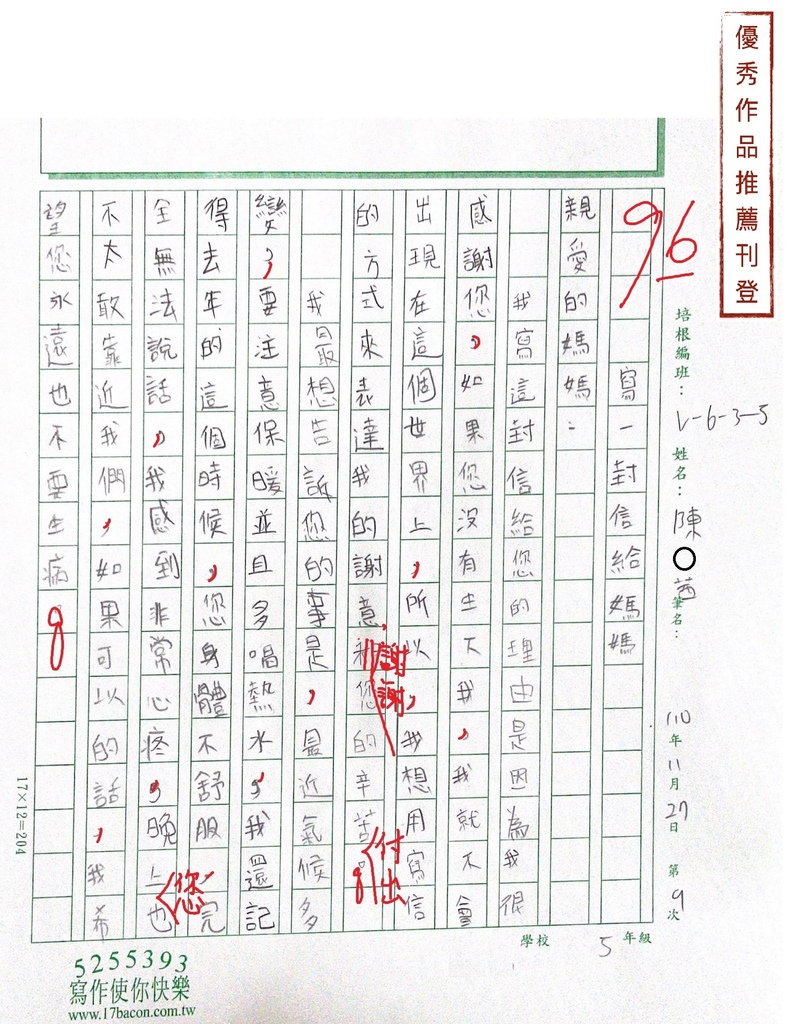 優秀作品推薦刊登
96
培根編班：V-6-3-5 姓名：陳〇茜 筆名： 110年11月27日 第9次
寫一封信給媽媽
親愛的媽媽：
我寫這封信給您的理由是因為我很
感謝您，如果您沒有生下我，我就不會
出現在這個世界上，所以，我想用寫信
的方式來表達我的謝意，謝謝您的辛苦付出。
我最想告訴您的事是，最近氣候多
變，要注意保暖並且多喝熱水，我還記
得去年的這個時候，您身體不舒服完
全無法說話，我感到非常心疼，晚上您也
不太敢靠近我們，如果可以的話，我希
望您永遠也不要生病。
17×12=204
學校 5年級
5255393
寫作使你快樂
www.17bacon.com.tw